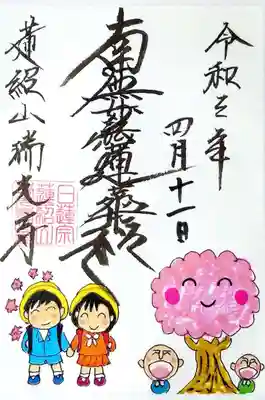 令和三年
四月十一日
南無妙法蓮華経
蓮紹山瑞光寺
日蓮宗
蓮紹山